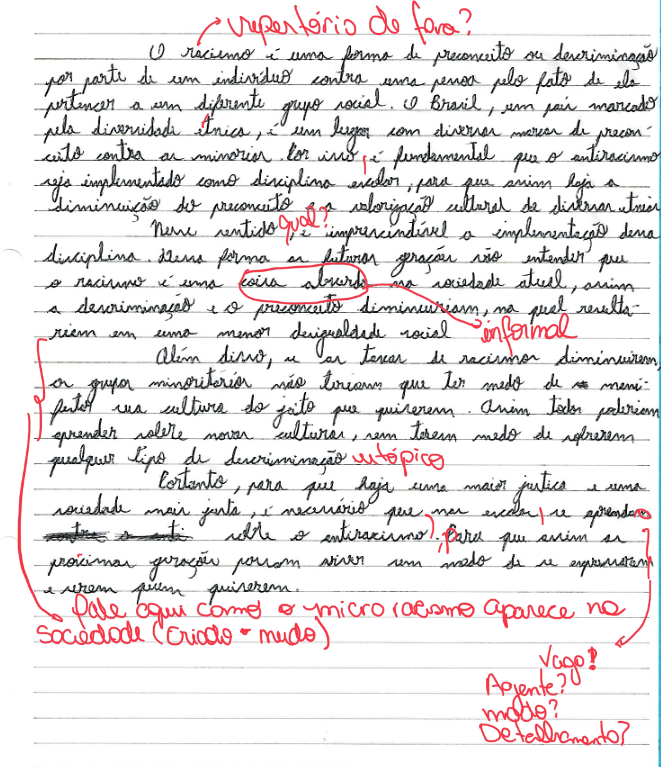 repertório de fora?
O racismo é uma forma de preconceito ou descriminação
por parte de um indivíduo contra uma pessoa pelo fato de ela
pertencer a um diferente grupo social. O Brasil, um país marcado
pela diversidade étnica, é um lugar com diversas marcas de precon-
ceito contra as minorias. Por isso, é fundamental que o antiracismo
seja implementado como disciplina escolar, para que assim haja a
diminuição do preconceito e a valorização cultural de diversas etnias
Nesse sentido, é imprescindível a implementação dessa
qual?
disciplina. Dessa forma as futuras geração vão entender que
o racismo é uma coisa absurda na sociedade atual, assim
a descriminação e o preconceito diminuiriam, na qual resulta-
riam em uma menor desigualdade social
informal
Além disso, se as taxas de racismos diminuirem,
os grupos minoritários não teriam que ter medo de mani-
festar sua cultura do jeito que quiserem. Assim todos poderiam
aprender sobre novas culturas, sem terem medo de sofrerem
qualquer tipo de descriminação utópico
Portanto, para que haja uma maior justica e uma
sociedade mais justa, é necessário que nas escolas, se aprenda
sobre o antiracismo. Para que assim as
proximas geração possam viver sem medo de se expressarem
e serem quem quiserem.
Fale aqui como o micro racismo aparece na
sociedade (criado-mudo)
Vago!
Agente?
modo?
Detalhamento?